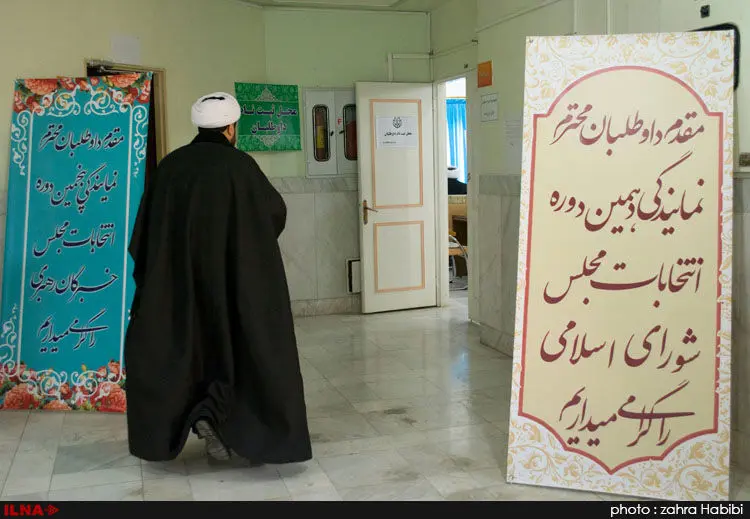 مقدم داوطلبان محترم
نمایندگی دهمین دوره
انتخابات مجلس
شورای اسلامی
را گرامی میداریم
محل ثبت نام
داوطلبان
مقدم داوطلبان محترم
نمایندگی پنجمین دوره
انتخابات مجلس
خبرگان رهبری
را گرامی میداریم
F
ILNA
photo : zahra Habibi